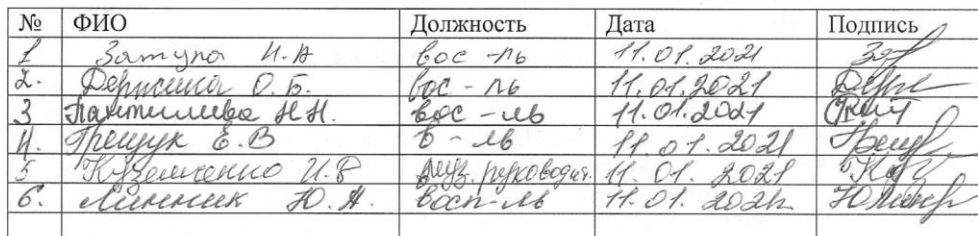 № ФИО Должность Дата Подпись
1 Затула И.А вос-ль 11.01.2021
2. О.Б. вос-ль 11.01.2021
3 Н.Н. вос-ль 11.01.2021
4. Грещук Е.В в-ль 11.01.2021
5 Кузьменко И.В муз. руководит. 11.01.2021
6. Линник Ю.А. восп-ль 11.01.2021г.